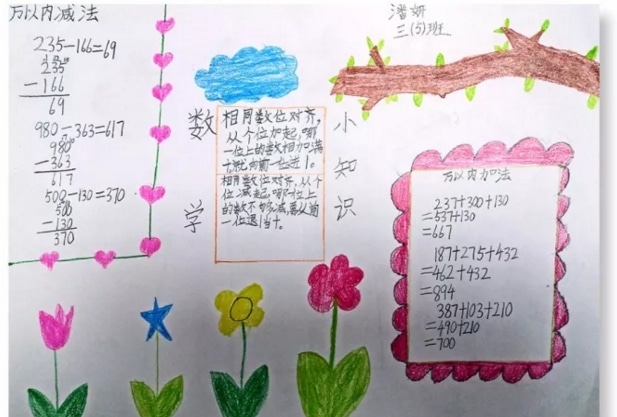 万以内减法
235-166=69
235
-166
69
980-363=617
980
-363
617
500-130=370
500
-130
370
数学
相同数位对齐,
从个位加起,哪
一位上的数相加满
十就向前一位进1。
相同数位对齐,从个
位减起,哪一位上
的数不够减,要从前
一位退1当十。
小知识
潘妍
三(5)班
万以内加法
237+300+130
=537+130
=667
187+275+432
=462+432
=894
387+103+210
=490+210
=700